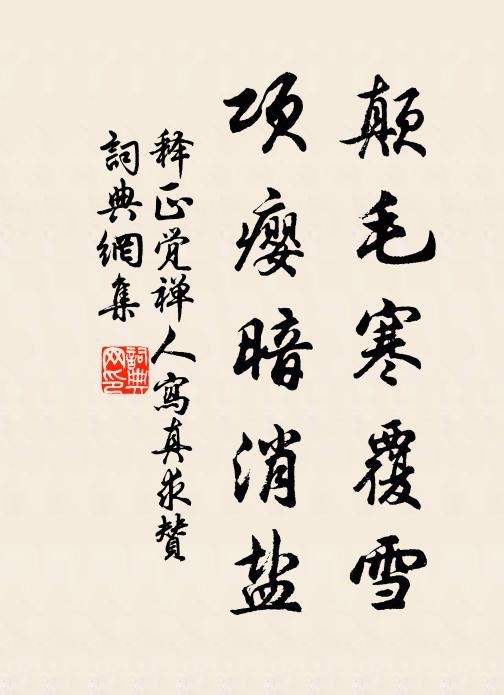 颠毛寒覆雪
项瘿暗消盐
释正觉禅人寫真求賛
詞典網集
詞典网印